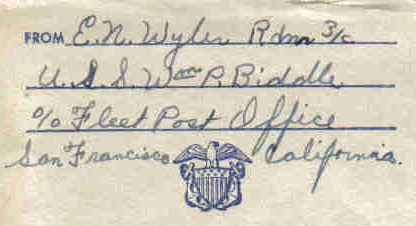 FROM E.N. Wyler Rdm 3/c
U.S.S. Wm P. Biddle
% Fleet Post Office
San Francisco California.